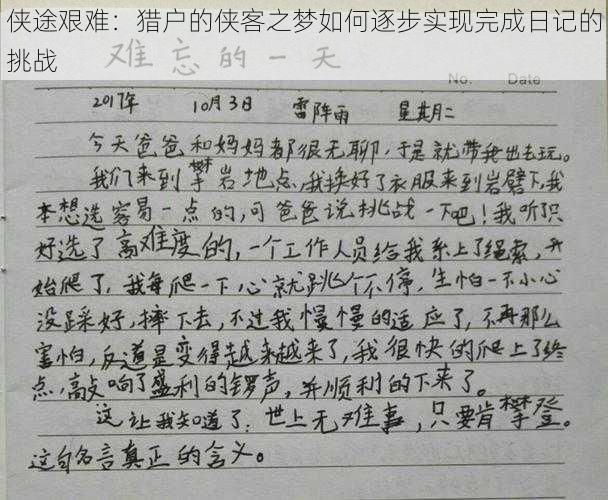 侠途艰难：猎户的侠客之梦如何逐步实现完成日记的
挑战
难忘的一天
No.
Date
2017年 10月3日 雷阵雨 星期二
今天爸爸和妈妈都很无聊，于是就带我出去玩。
我们来到攀岩地点，我换好了衣服来到岩臂下，我
本想选容易一点的，可爸爸说挑战一下吧！我听只
好选了高难度的，一个工作人员给我系上了绳索，开
始爬了，我每爬一下，心就跳个不停，生怕一不小心
没踩好，摔下去，不过我慢慢的适应了，不再那么
害怕，反道是变得越来越来了，我很快的爬上了终
点，敲响了盛利的锣声，并顺利的下来了。
这让我知道了：世上无难事，只要肯攀登。
这句名言真正的含义。